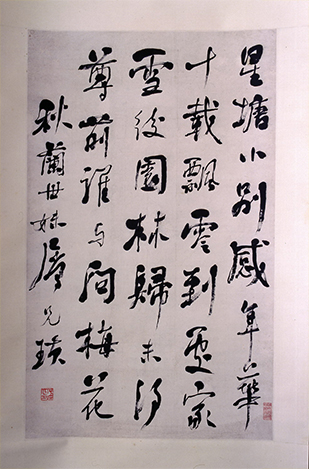 星塘小別感年華
十載飄零到處家
雪後園林歸未得
尊前誰与問梅花
秋蘭世妹属兄璜